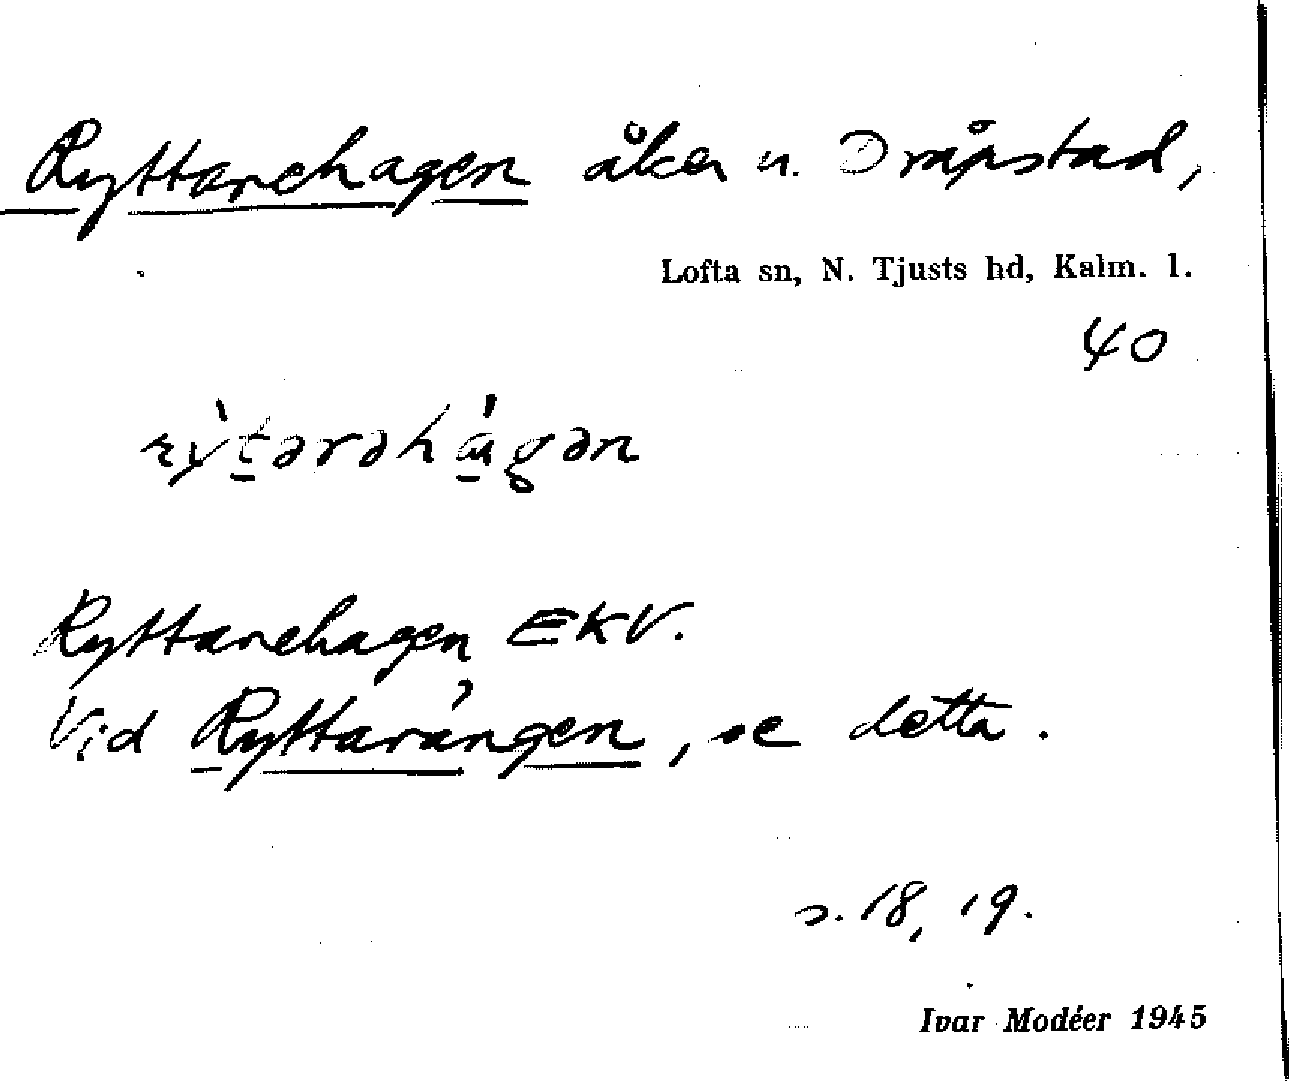 Ryttarehagen åker u. Dråpstad,
Lofta sn, N. Tjusts hd, Kalm. l.
40
Ryttarehagen EKV.
Vid Ryttarängen, se detta.
s. 18, 19.
Ivar Modéer 1945